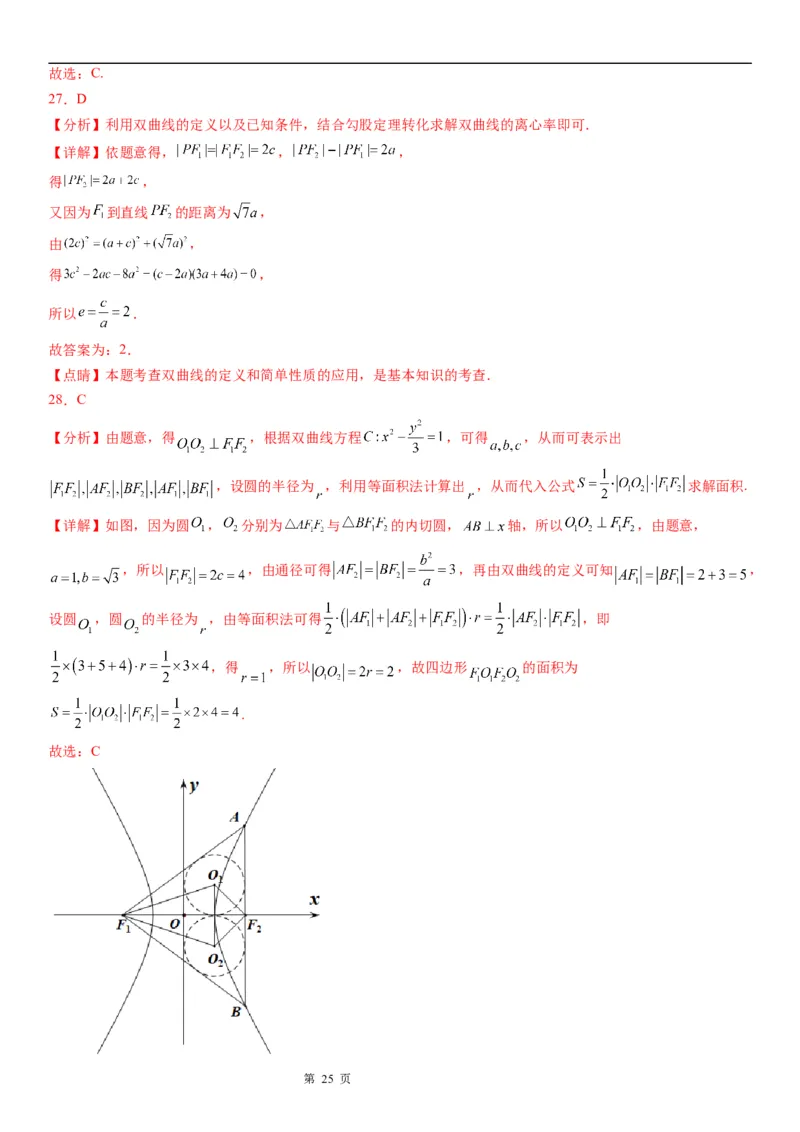 故选：C.
27．D
【分析】利用双曲线的定义以及已知条件，结合勾股定理转化求解双曲线的离心率即可．
【详解】依题意得，|PF₁|=|F₁F₂|=2c，|PF₂|−|PF₁|=2a，
得|PF₂|=2a+2c，
又因为F₁到直线PF₂的距离为√7a，
由(2c)²=(a+c)²+(√7a)²，
得3c²−2ac−8a²=(c−2a)(3a+4a)=0，
所以e=c/a=2．
故答案为：2．
【点睛】本题考查双曲线的定义和简单性质的应用，是基本知识的考查．
28．C
【分析】由题意，得O₁O₂⊥F₁F₂，根据双曲线方程C:x²−y²/3=1，可得a,b,c，从而可表示出
|F₁F₂|,|AF₂|,|BF₂|,|AF₁|,|BF₁|，设圆的半径为r，利用等面积法计算出r，从而代入公式S=1/2·|O₁O₂|·|F₁F₂|求解面积.
【详解】如图，因为圆O₁，O₂分别为△AF₁F₂与△BF₁F₂的内切圆，AB⊥x轴，所以O₁O₂⊥F₁F₂，由题意，
a=1,b=√3，所以|F₁F₂|=2c=4，由通径可得|AF₂|=|BF₂|=b²/a=3，再由双曲线的定义可知|AF₁|=|BF₁|=2+3=5，
设圆O₁，圆O₂的半径为r，由等面积法可得1/2·(|AF₁|+|AF₂|+|F₁F₂|)·r=1/2·|AF₂|·|F₁F₂|，即
1/2×(3+5+4)·r=1/2×3×4，得r=1，所以|O₁O₂|=2r=2，故四边形F₁O₁F₂O₂的面积为
S=1/2·|O₁O₂|·|F₁F₂|=1/2×2×4=4.
故选：C
y
A
O₁
x
F₁ O F₂
O₂
B
第 25 页